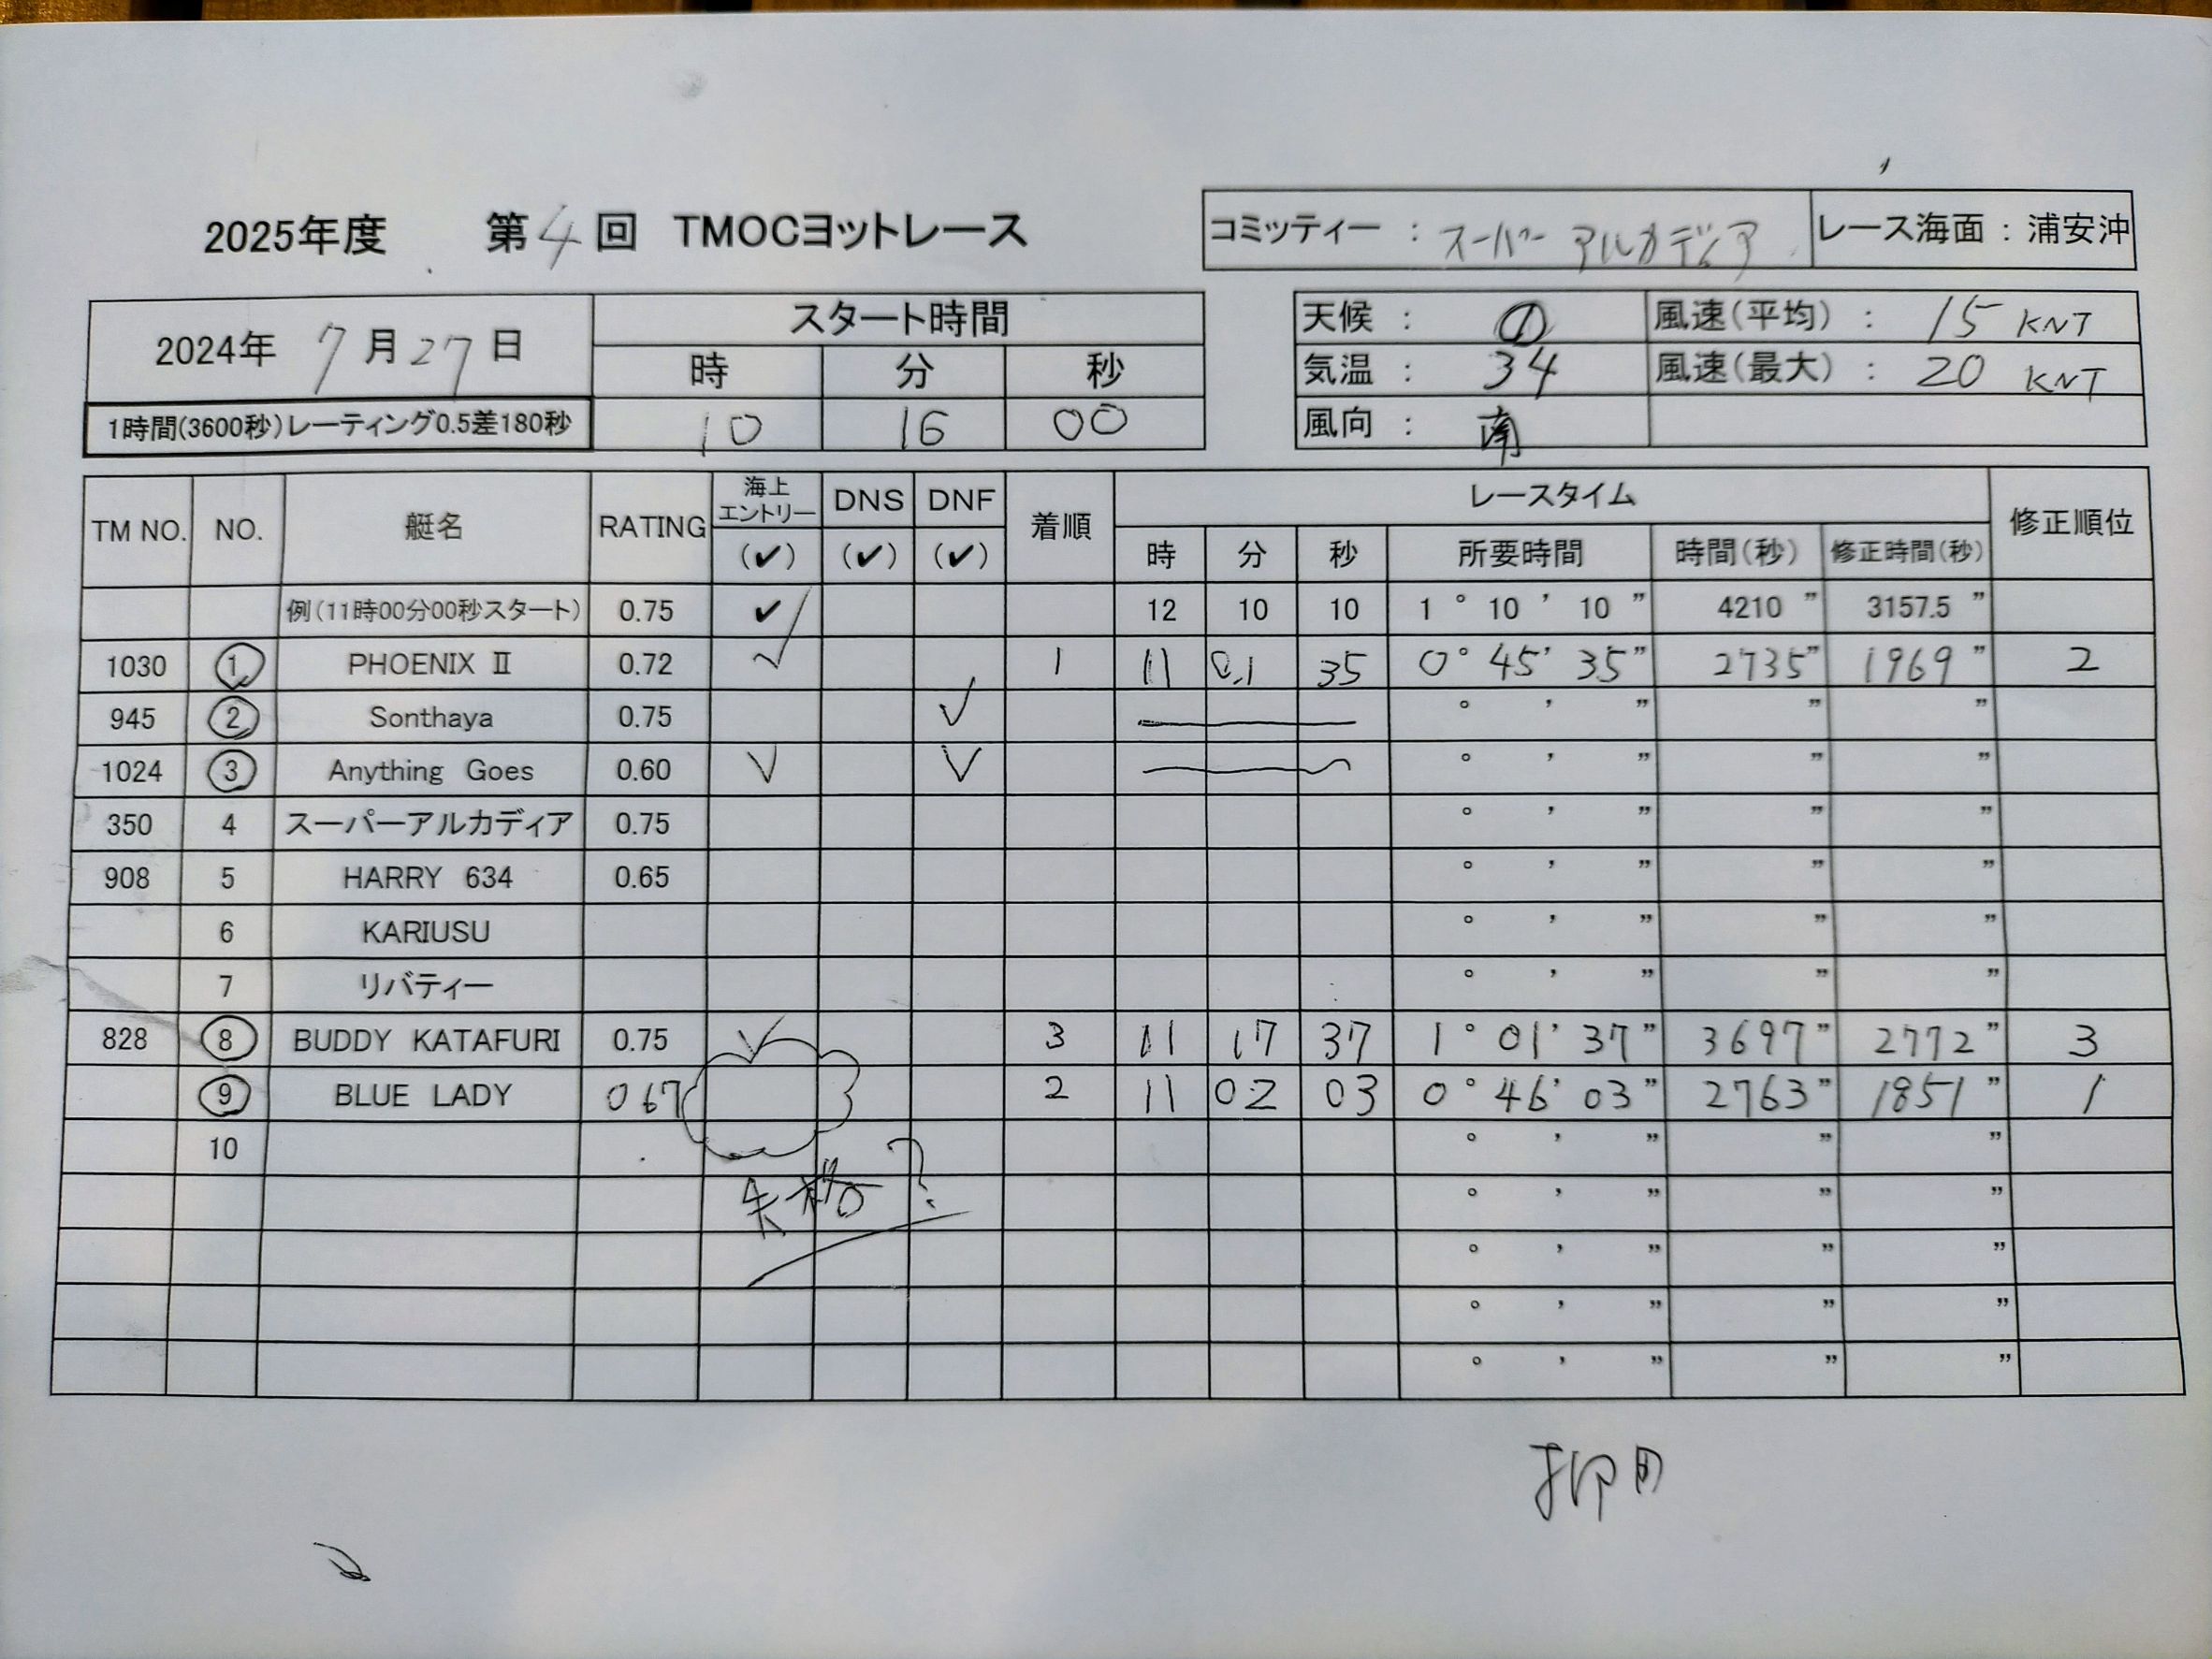 2025年度 第4回 TMOCヨットレース
コミッティー : スーパーアルカディア レース海面 : 浦安沖
2024年 7月27日 スタート時間
時 分 秒
1時間(3600秒)レーティング0.5差180秒 10 16 00
天候 : 風速(平均) : 15 KNT
気温 : 34 風速(最大) : 20 KNT
風向 : 南
TM NO. NO. 艇名 RATING 海上エントリー (✔) DNS (✔) DNF (✔) 着順 レースタイム 修正順位
時 分 秒 所要時間 時間(秒) 修正時間(秒)
例(11時00分00秒スタート) 0.75 ✔ 12 10 10 1 ° 10 ’ 10 ” 4210 ” 3157.5 ”
1030 ① PHOENIX Ⅱ 0.72 ✓ 1 11 01 35 0 ° 45 ’ 35 ” 2735 ” 1969 ” 2
945 ② Sonthaya 0.75 ✓ ° ’ ” ” ”
1024 ③ Anything Goes 0.60 ✓ ✓ ° ’ ” ” ”
350 4 スーパーアルカディア 0.75 ° ’ ” ” ”
908 5 HARRY 634 0.65 ° ’ ” ” ”
6 KARIUSU ° ’ ” ” ”
7 リバティー ° ’ ” ” ”
828 ⑧ BUDDY KATAFURI 0.75 ✓ 3 11 17 37 1 ° 01 ’ 37 ” 3697 ” 2772 ” 3
⑨ BLUE LADY 0 67 2 11 02 03 0 ° 46 ’ 03 ” 2763 ” 1851 ” 1
10 ° ’ ” ” ”
失格? ° ’ ” ” ”
° ’ ” ” ”
° ’ ” ” ”
° ’ ” ” ”